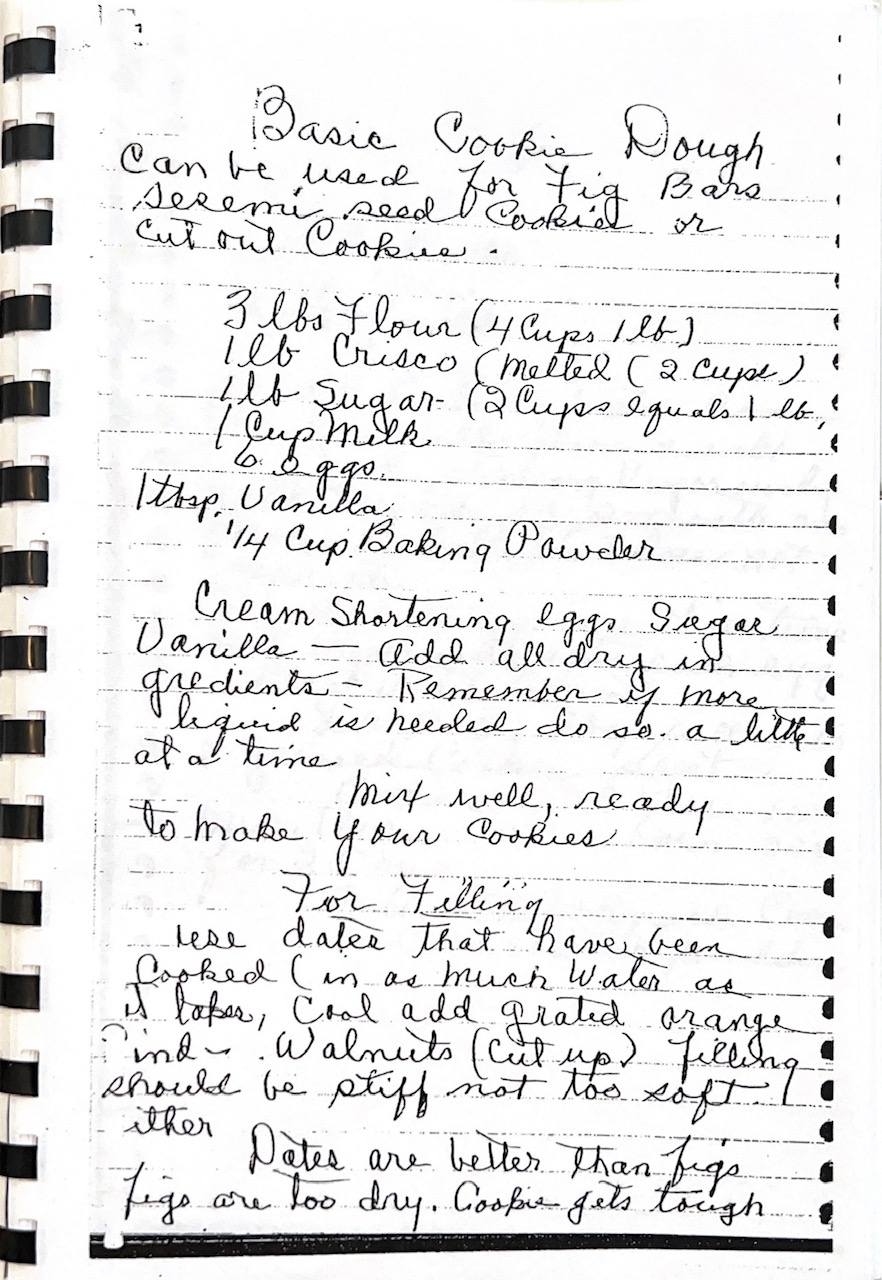 Basic Cookie Dough
Can be used for Fig Bars
Sesemi seed Cookies or
Cut out Cookies.
3 lbs Flour (4 Cups 1 lb)
1 lb Crisco (Melted (2 Cups)
1 lb Sugar- (2 Cups equals 1 lb,
1 Cup Milk
6 eggs.
1 tbsp. Vanilla
1/4 Cup Baking Powder
Cream Shortening eggs Sugar
Vanilla — Add all dry in
gredients - Remember if more
liquid is needed do so. a little
at a time
Mix well, ready
to make your Cookies
For Filling
use dates that have been
Cooked (in as much Water as
it takes, Cool add grated orange
ind - . Walnuts (Cut up) filling
should be stiff not too soft.
ither
Dates are better than figs
figs are too dry. Cookie gets tough